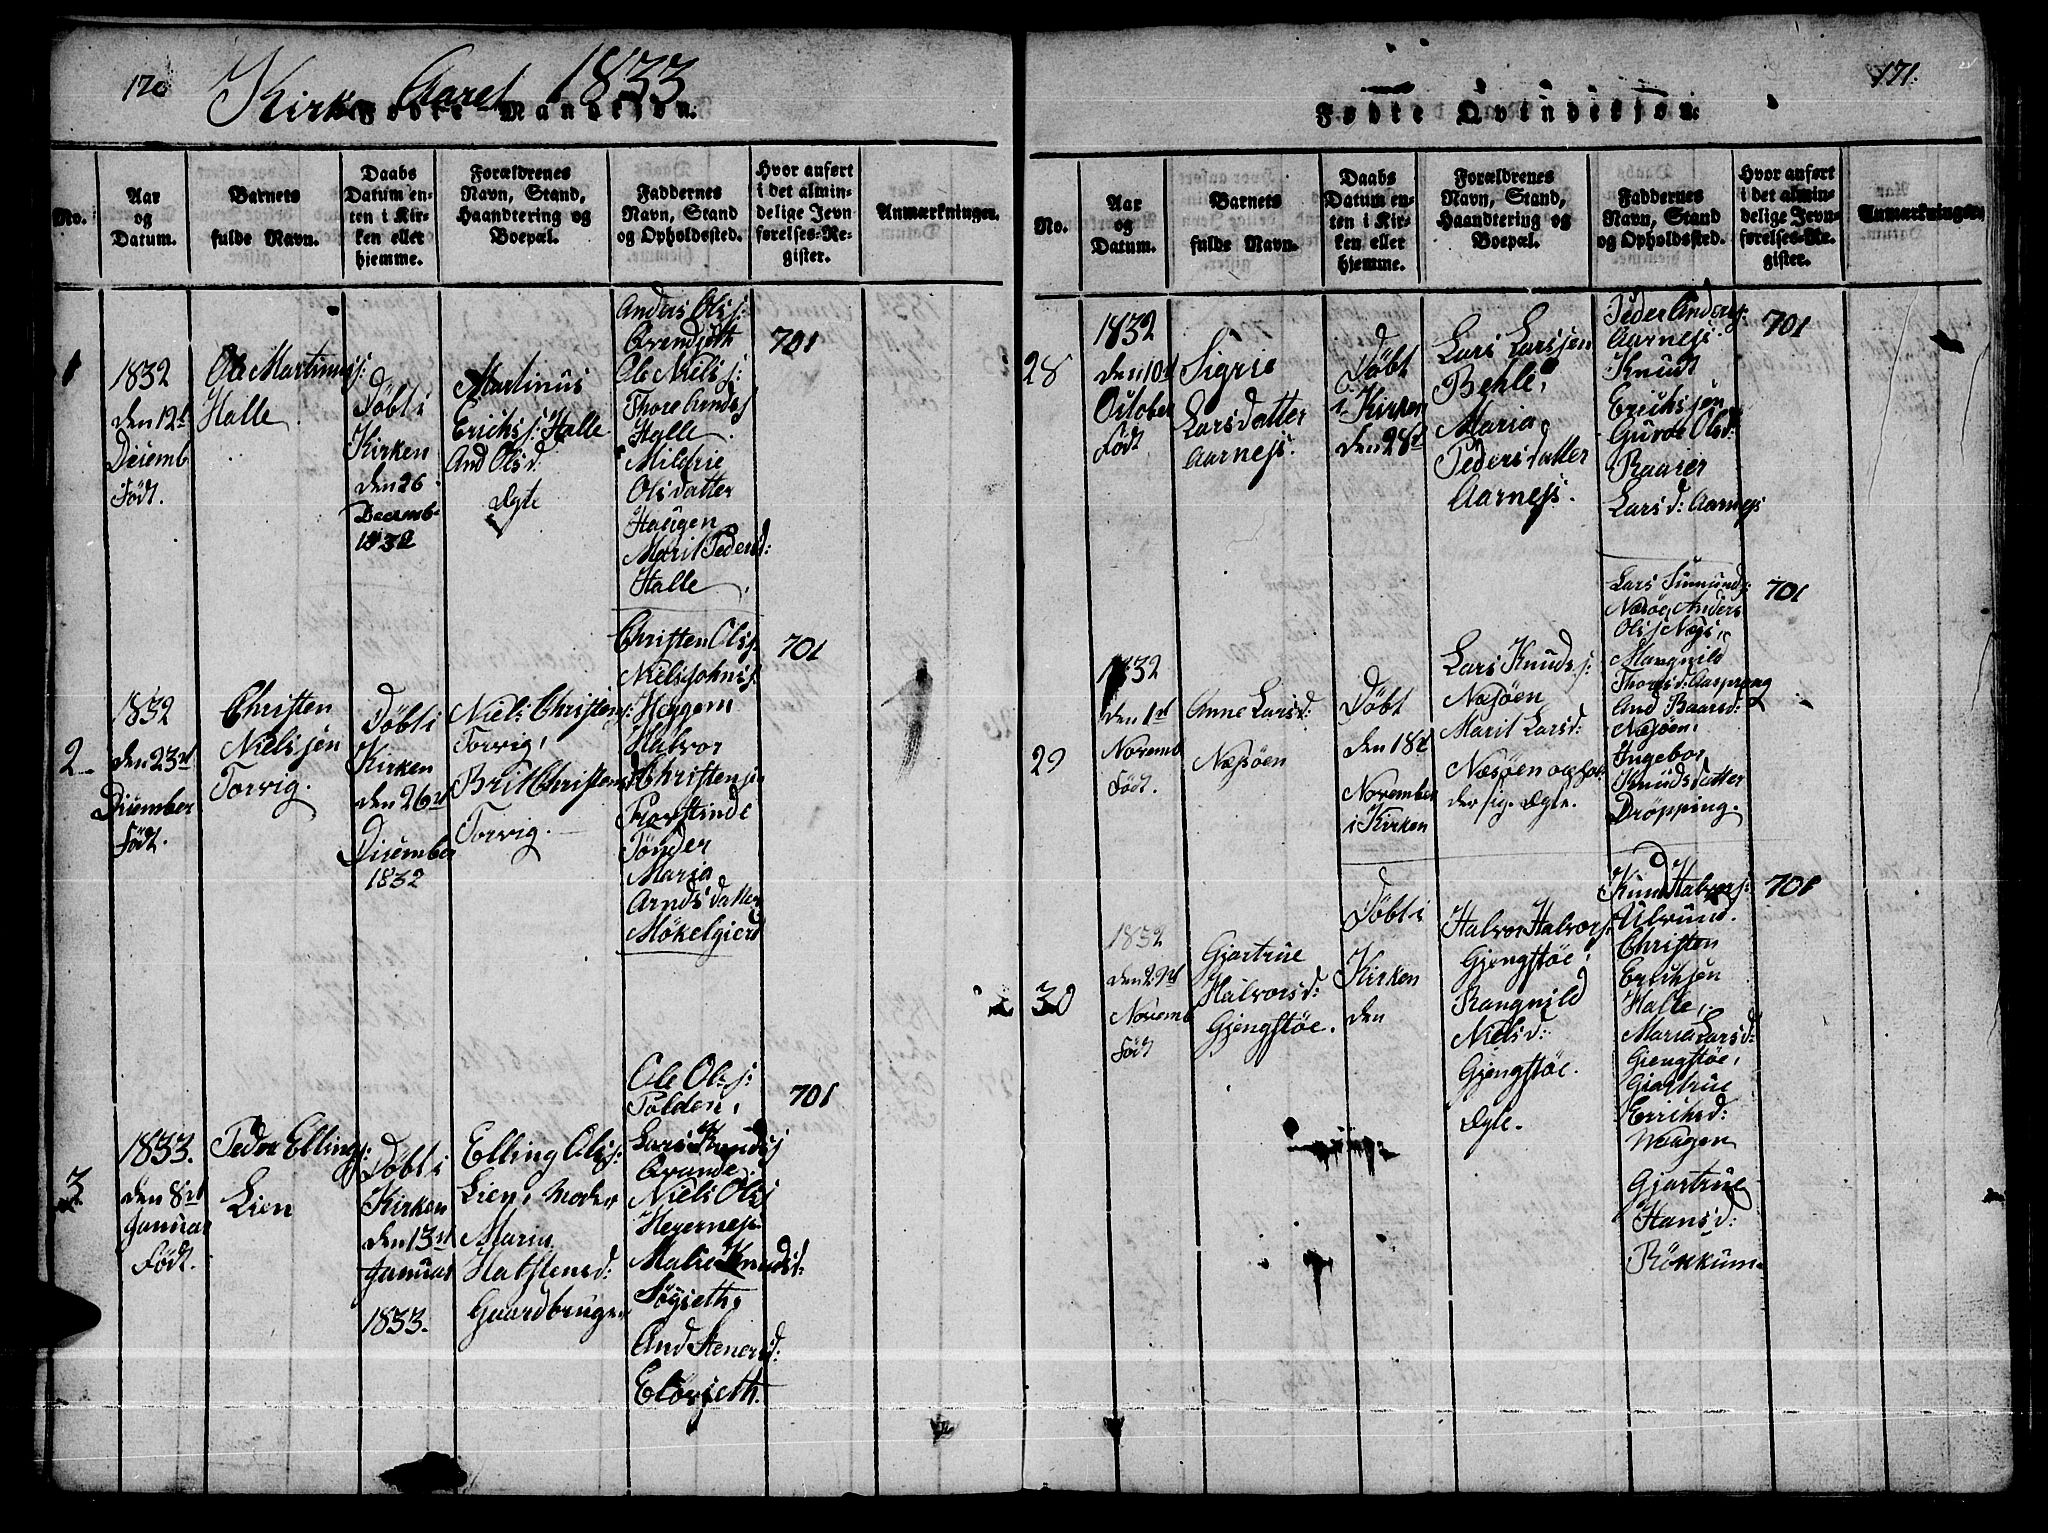 170
Kirke Aaret 1833
Fødte Mandkjøn.
No.
Aar
og
Datum.
Barnets
fulde Navn.
Daabs
Datum en-
ten i Kir-
ken eller
hjemme.
Forældrenes
Navn, Stand,
Haandtering og
Boepæl.
Faddernes
Navn, Stand
og Opholdssted.
Hvor anført
i det almin-
delige Jevn
førelses-Re-
gister.
Anmærkninger.
1
1832
den 12t
Decemb
Født.
Ole Martinusj:
Halle.
Döbt i
Kirken
den 26
Decemb.
1832
Martinus
Erichsj: Halle
And Olsd:
Egte
Anders Olsj:
Ole Nielsj:
Thore Arndsj
Halle.
Mildrie
Olsdatter
Haugen
Marit Pedersd:
Halle,
701
2
1832
den 23de
December
Født.
Christen
Nielssen
Torvig.
Döbt i
Kirken
den 26de
December
1832
Niels Christens:
Torvig,
Brit Christensd
Torvig.
Christen Olsj.
Niels Johnsj.
Heggem
Halvor
Christensen
Tønder
Maria
Arndsdatter
Møkelgierd
701
3
1833.
den 8de
Januar
Født.
Peder Ellingsj:
Lien
Döbt i
Kirken
den 13de
Januar
1833.
Elling Olsj:
Lien, Moder
Maria
Halstensd:
Gaardbruger
Ole Olsj:
Talden,
Lars Knudsj
Niels Olsj
Hegernesj
Malie Knudsd:
And Stenersd:
701
171.
Fødte Qvindekjøn:
No.
Aar
og
Datum.
Barnets
fulde Navn.
Daabs
Datum en-
ten i Kir-
ken eller
hjemme.
Forældrenes
Navn, Stand,
Haandtering og
Boepæl.
Faddernes
Navn, Stand
og Opholdssted.
Hvor anført
i det almin-
delige Jevn-
førelses-Re-
gister.
Anmærkninger.
28
1832
den 10de
October
Født
Sigrie
Larsdatter
Aarnesj.
Döbt
i Kirken
den 28de
Lars Larssen
Behle,
Maria
Pedersdatter
Aarnesj.
Peder Andersj:
Aarnesj.
Knudt
Erichssen
Guroe Olsd:
Raaer
Larsd: Aarnesj
701
29
1832
den 1st
Novemb
Født.
Anne Larsd:
Næsöen
Döbt
den 18de
November
i Kirken
Lars Knudsj:
Næsöen
Marit Larsd:
Næsöen
Egte.
Lars Simundsj:
Næsöe, Anders
Olsj Nesj,
Mangnild
Thorsd: Aasprong
And Baarsd:
Næsöen,
Ingebor
Knudsdatter
Dröpping.
701
30
1832
den 29de
Novemb
Født
Gjartrue
Halvorsd:
Gjengstöe.
Döbt i
Kirken
den
Halvor Halvorsj:
Gjengstöe,
Rangnild
Nielsd:
Gjengstöe.
Egte.
Knud Halvorsj:
Ulvund.
Christen
Ericksen
Halle,
Maria Larsd:
Gjengstöe,
Gjartrue
Erichsd:
Waagen
Gjartrue
Hansd:
Rökkum.
701